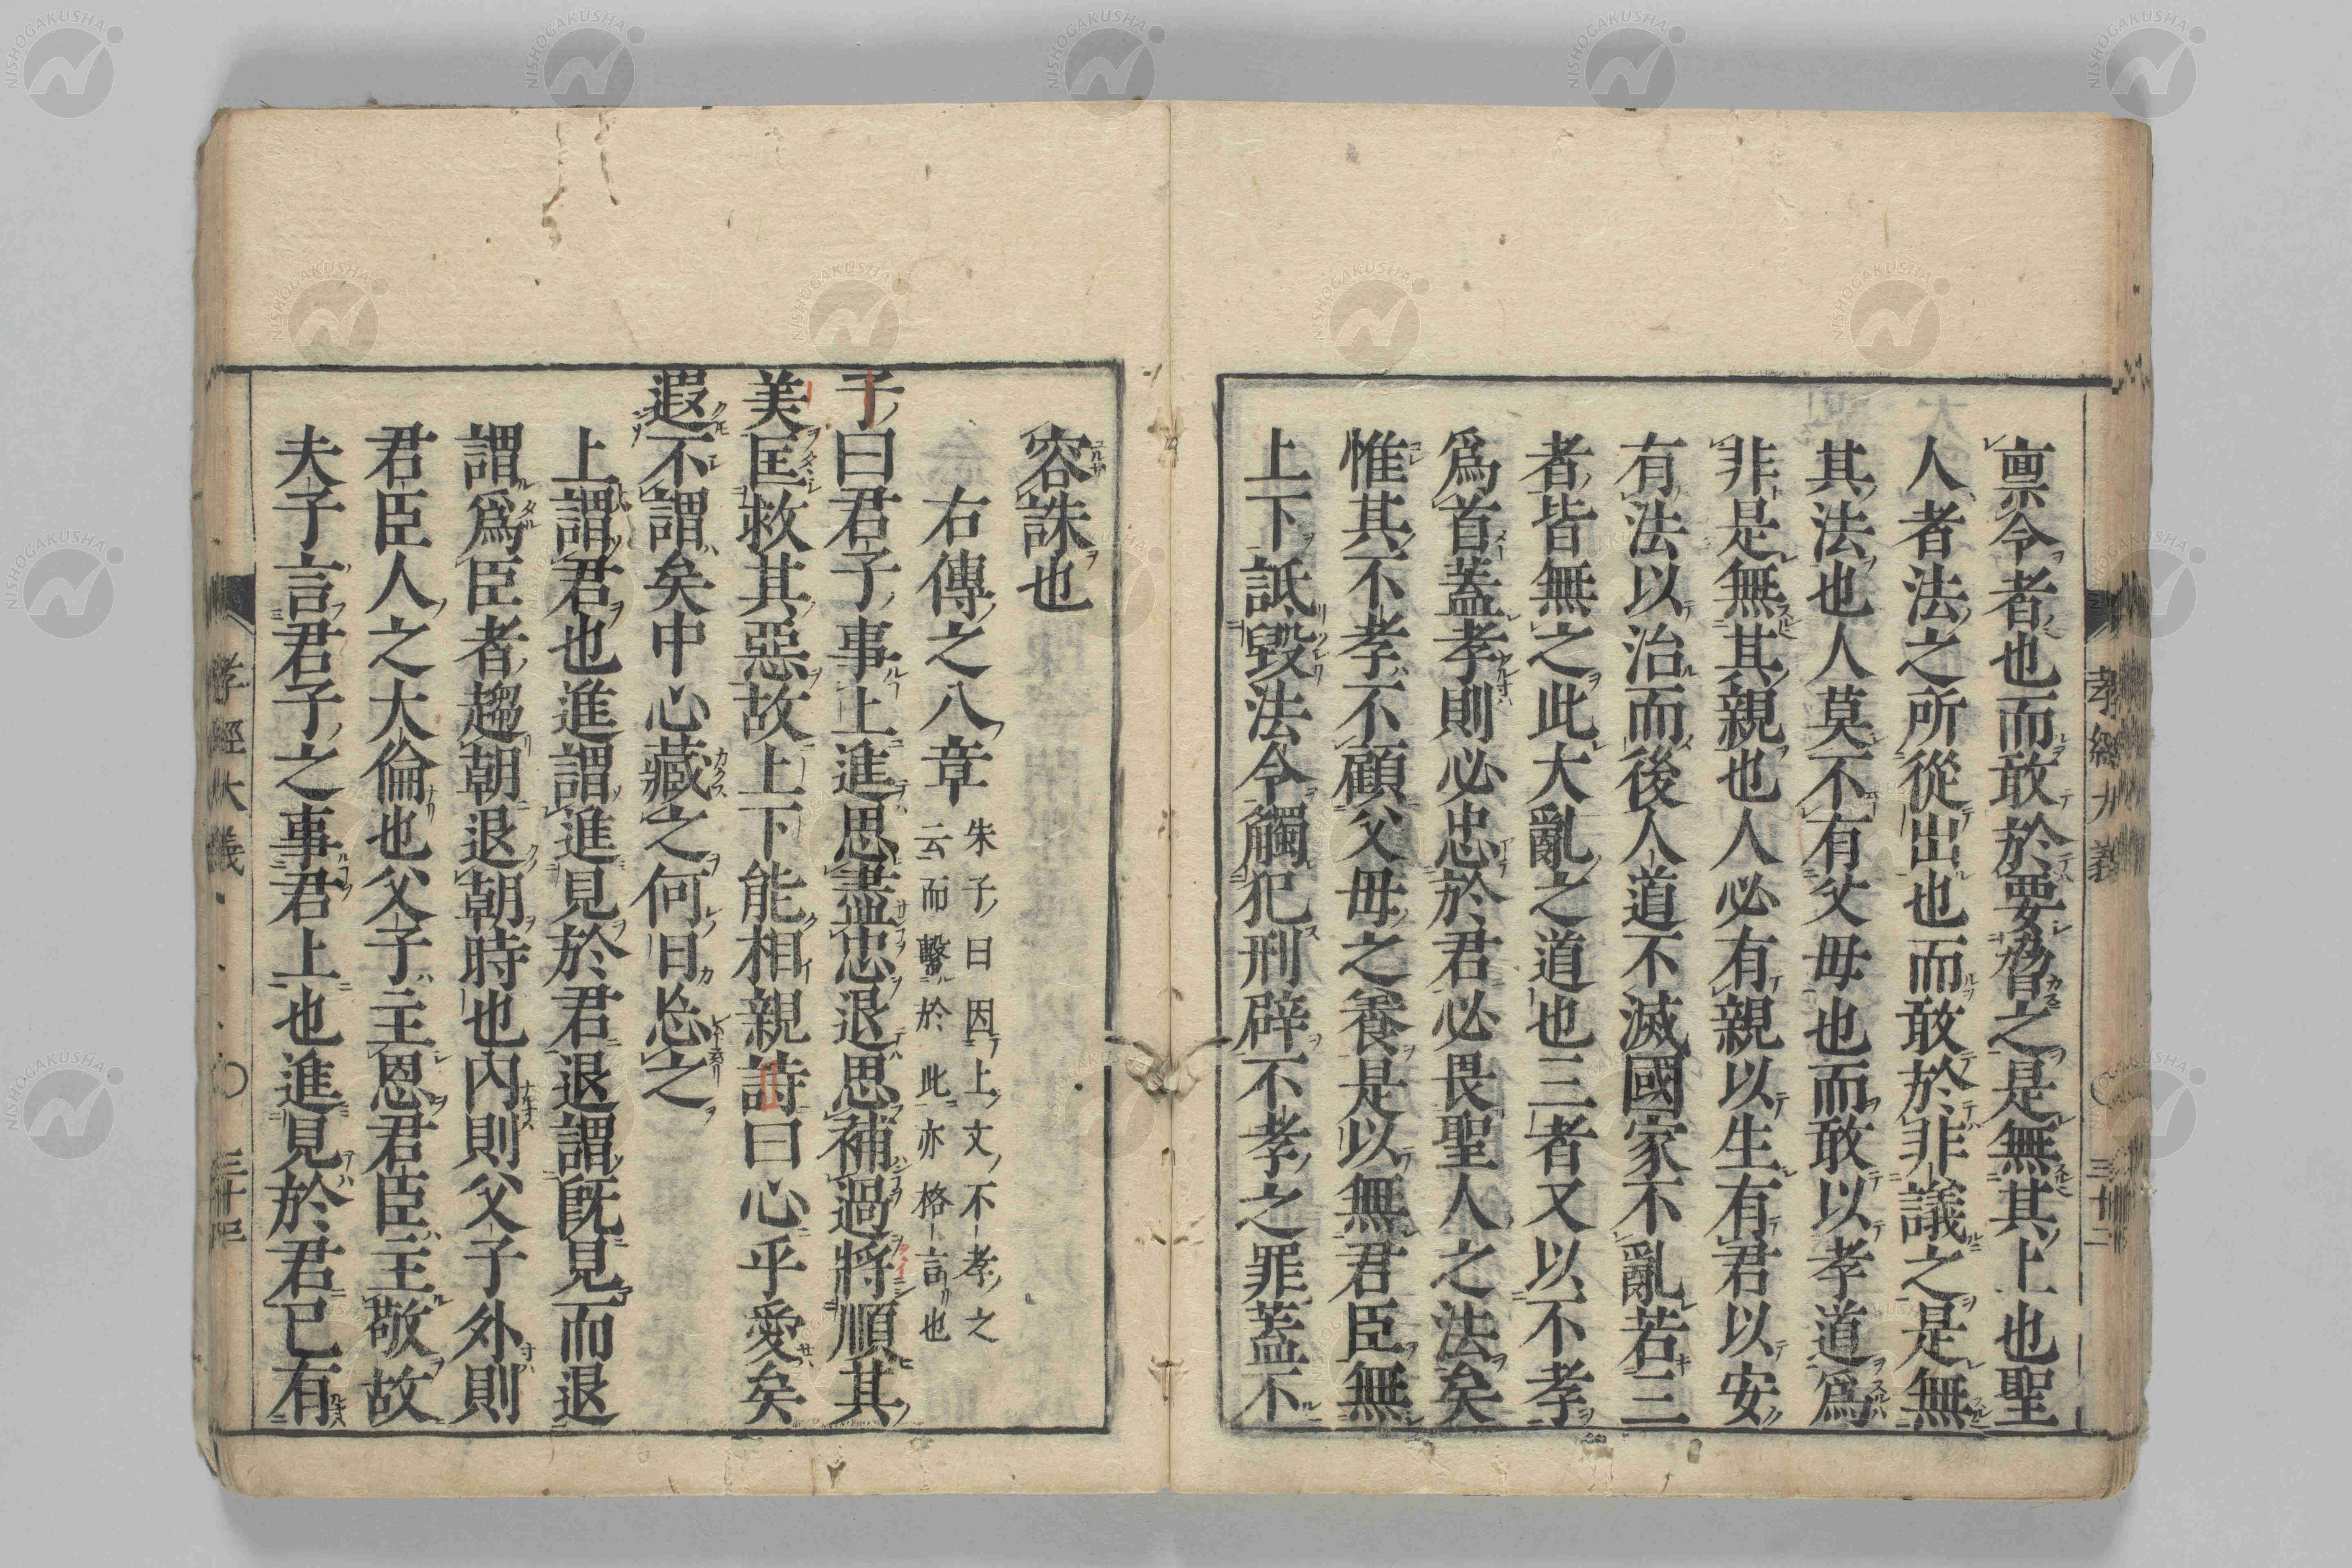 稟令者也而敢於要脅之是無其上也聖
人者法之所從出也而敢於非議之是無
其法也人莫不有父母也而敢以孝道爲
非是無其親也人必有親以生有君以安
有法以治而後人道不滅國家不亂若三
者皆無之此大亂之道也三者又以不孝
爲首蓋孝則必忠於君必畏聖人之法矣
惟其不孝不顧父母之養是以無君臣無
上下詆毀法令觸犯刑辟不孝之罪蓋不
容誅也
右傳之八章
朱子曰因上文不孝之
云而繫於此亦格言也
子曰君子事上進思盡忠退思補過將順其
美匡救其惡故上下能相親詩曰心乎愛矣
遐不謂矣中心藏之何日忘之
上謂君也進謂進見於君退謂旣見而退
謂爲臣者趨朝退朝時也內則父子外則
君臣人之大倫也父子主恩君臣主敬故
夫子言君子之事君上也進見於君已有
孝經大義
NISHOGAKUSHA